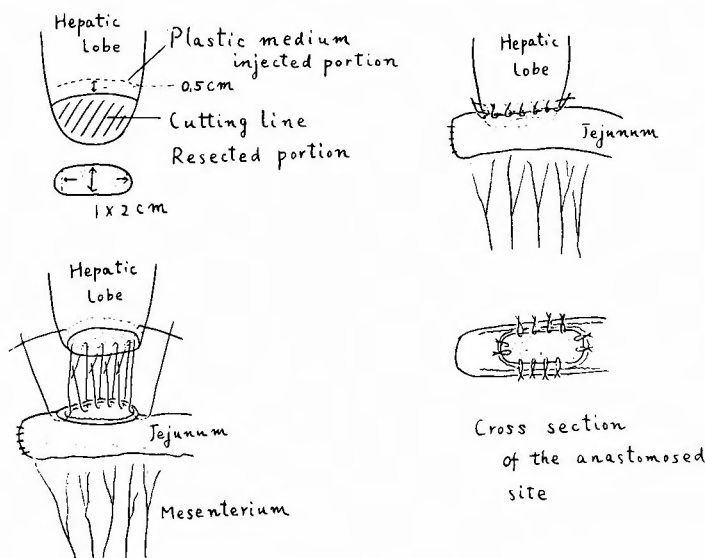 Hepatic
Lobe
Plastic medium
injected portion
0.5 cm
Cutting line
Resected portion
1 x 2 cm
Hepatic
Lobe
Jejunum
Hepatic
Lobe
Jejunum
Mesenterium
Cross section
of the anastomosed
site